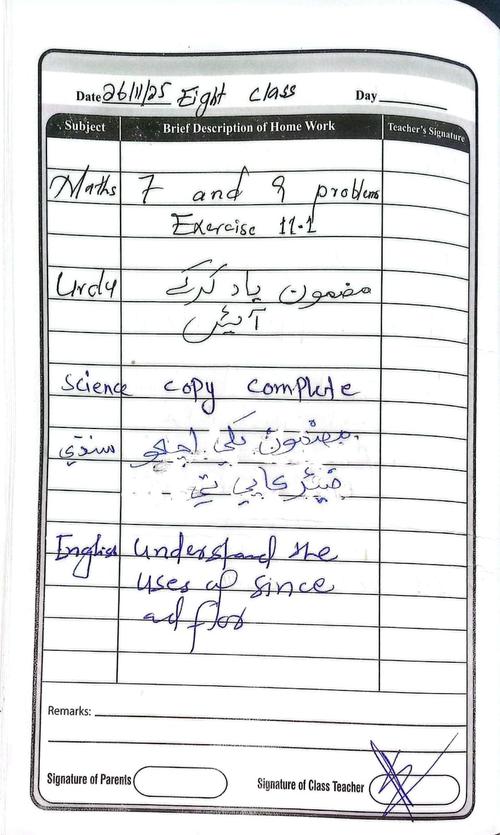 Date 26/11/25 Eight class Day
Subject Brief Description of Home Work Teacher's Signature
Maths 7 and 9 problems
Exercise 11.1
Urdu مضمون یاد کرکے
آئیں
Science copy complete
سنڌي مضمون لکي اچو
فيئر کاپي تي
English Understand the
uses of since
ad for
Remarks:
Signature of Parents Signature of Class Teacher